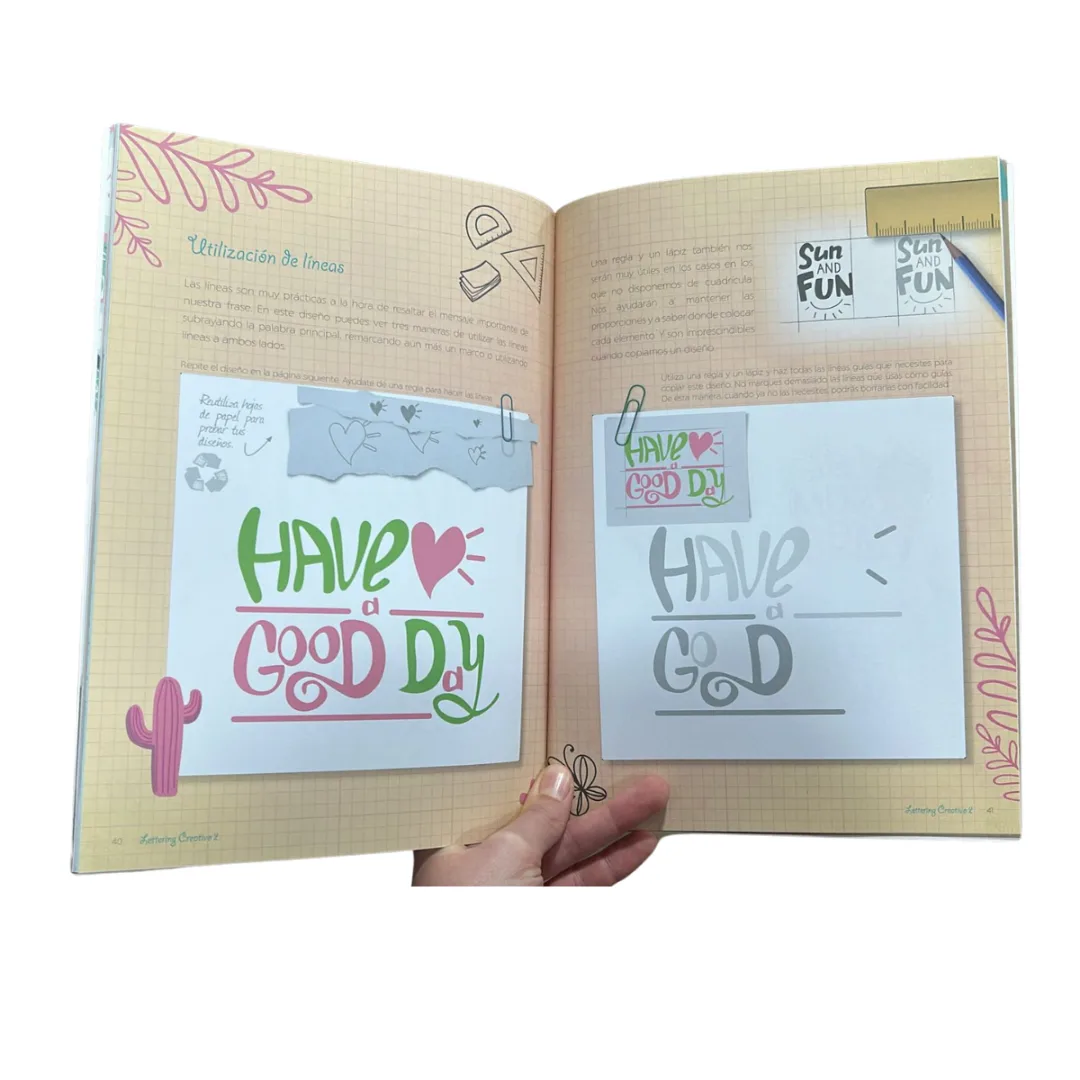 Utilización de líneas
Las líneas son muy prácticas a la hora de resaltar el mensaje importante de
nuestra frase. En este diseño puedes ver tres maneras de utilizar las líneas:
subrayando la palabra principal, remarcando aún más un marco o utilizando
líneas a ambos lados.
Repite el diseño en la página siguiente. Ayúdate de una regla para hacer las líneas.
Reutiliza hojas
de papel para
probar tus
diseños.
HAVe
a
GOOD Day
40 Lettering Creativo 2
Una regla y un lápiz también nos
serán muy útiles en los casos en los
que no disponemos de cuadrícula.
Nos ayudarán a mantener las
proporciones y a saber dónde colocar
cada elemento. Y son imprescindibles
cuando copiamos un diseño.
Sun
AND
FUN
Sun
AND
FUN
Utiliza una regla y un lápiz y haz todas las líneas guías que necesites para
copiar este diseño. No marques demasiado las líneas que usas como guías.
De esta manera, cuando ya no las necesites, podrás borrarlas con facilidad.
HAVe
a
GOOD Day
HAVe
a
GO D
Lettering Creativo 2 41